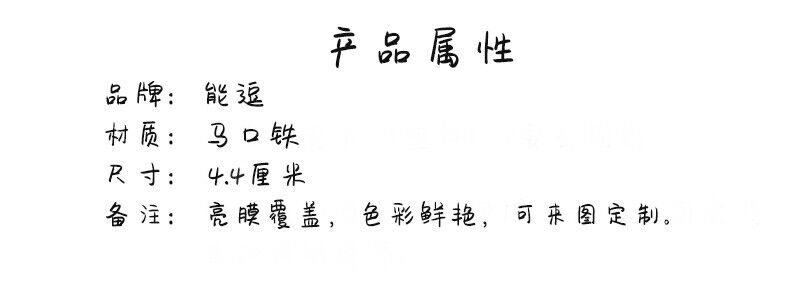 产品属性
品牌：能逗
材质：马口铁
尺寸：4.4厘米
备注：亮膜覆盖，色彩鲜艳，可来图定制。